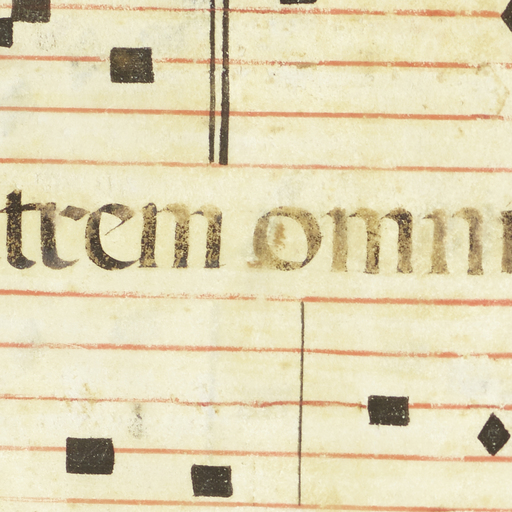 trem omni